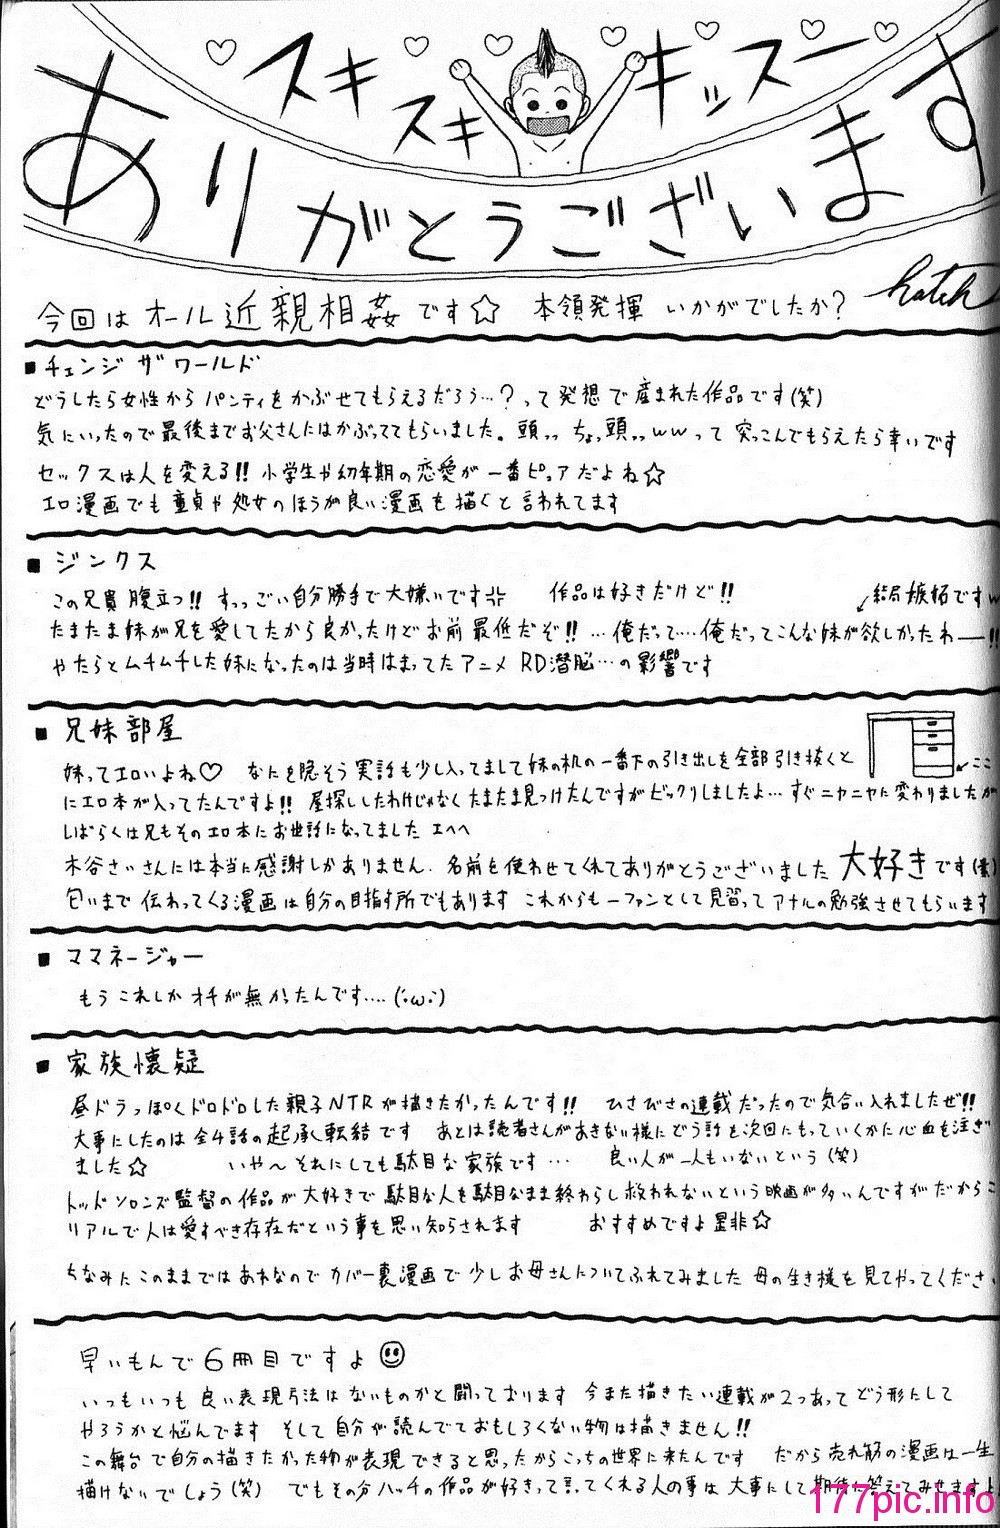 スキスキキッズー
ありがとうございます
hatch
今回はオール近親相姦です☆ 本領発揮 いかがでしたか?
■チェンジ ザ ワールド
どうしたら女性からパンティをかぶせてもらえるだろう…?って発想で産まれた作品です(笑)
気にいったので最後までお父さんにはかぶっててもらいました。頭ッッ ちょっ頭ッッwwって突っこんでもらえたら幸いです
セックスは人を変える!! 小学生や幼年期の恋愛が一番ピュアだよね☆
エロ漫画でも童貞や処女のほうが良い漫画を描くと言われてます
■ジンクス
この兄貴腹立つ!! すっっごい自分勝手で大嫌いです 作品は好きだけど!! 結局嫉妬ですw
たまたま妹が兄を愛してたから良かったけどお前最低だぞ!! …俺だって…俺だってこんな妹が欲しかったわ――!!
やたらとムチムチした妹になったのは当時はまってたアニメ RD潜脳…の影響です
■兄妹部屋
妹ってエロいよね♡ なにを隠そう実話も少し入ってまして妹の机の一番下の引き出しを全部引き抜くと
ここ
にエロ本が入ってたんですよ!! 屋探ししたわけじゃなくたまたま見つけたんですがビックリしましたよ…すぐニヤニヤに変わりましたが
しばらくは兄もそのエロ本にお世話になってました エヘヘ
木谷さいさんには本当に感謝しかありません. 名前を使わせてくれてありがとうございました 大好きです
匂いまで伝わってくる漫画は自分の目指す所でもあります これからも一ファンとして見習ってアナルの勉強させてもらいます
■ママネージャー
もうこれしかオチが無かったんです….(´・ω・`)
■家族懐疑
昼ドラっぽくドロドロした親子NTRが描きたかったんです!! ひさびさの連載だったので気合い入れましたぜ!!
大事にしたのは全4話の起承転結です あとは読者さんがあきない様にどう話を次回にもっていくかに心血を注ぎ
ました☆ いや〜それにしても駄目な家族です… 良い人が一人もいないという(笑)
トッドソロンズ監督の作品が大好きで駄目な人を駄目なまま終わらし救われないという映画が多いんですがだからこ
リアルで人は愛すべき存在だという事を思い知らされます おすすめですよ是非☆
ちなみにこのままではあれなのでカバー裏漫画で少しお母さんについてふれてみました 母の生き様を見てやってくださ
早いもんで6冊目ですよ
いつもいつも良い表現方法はないものかと闘っております 今また描きたい連載が2つあってどう形にして
やろうかと悩んでます そして自分が読んでておもしろくない物は描きません!!
この舞台で自分の描きたかった物が表現できると思ったからこっちの世界に来たんです だから売れ筋の漫画は一生
描けないでしょう(笑) でもその分ハッチの作品が好きって言ってくれる人の事は大事にして期待に答えてみせますよ
177pic.info